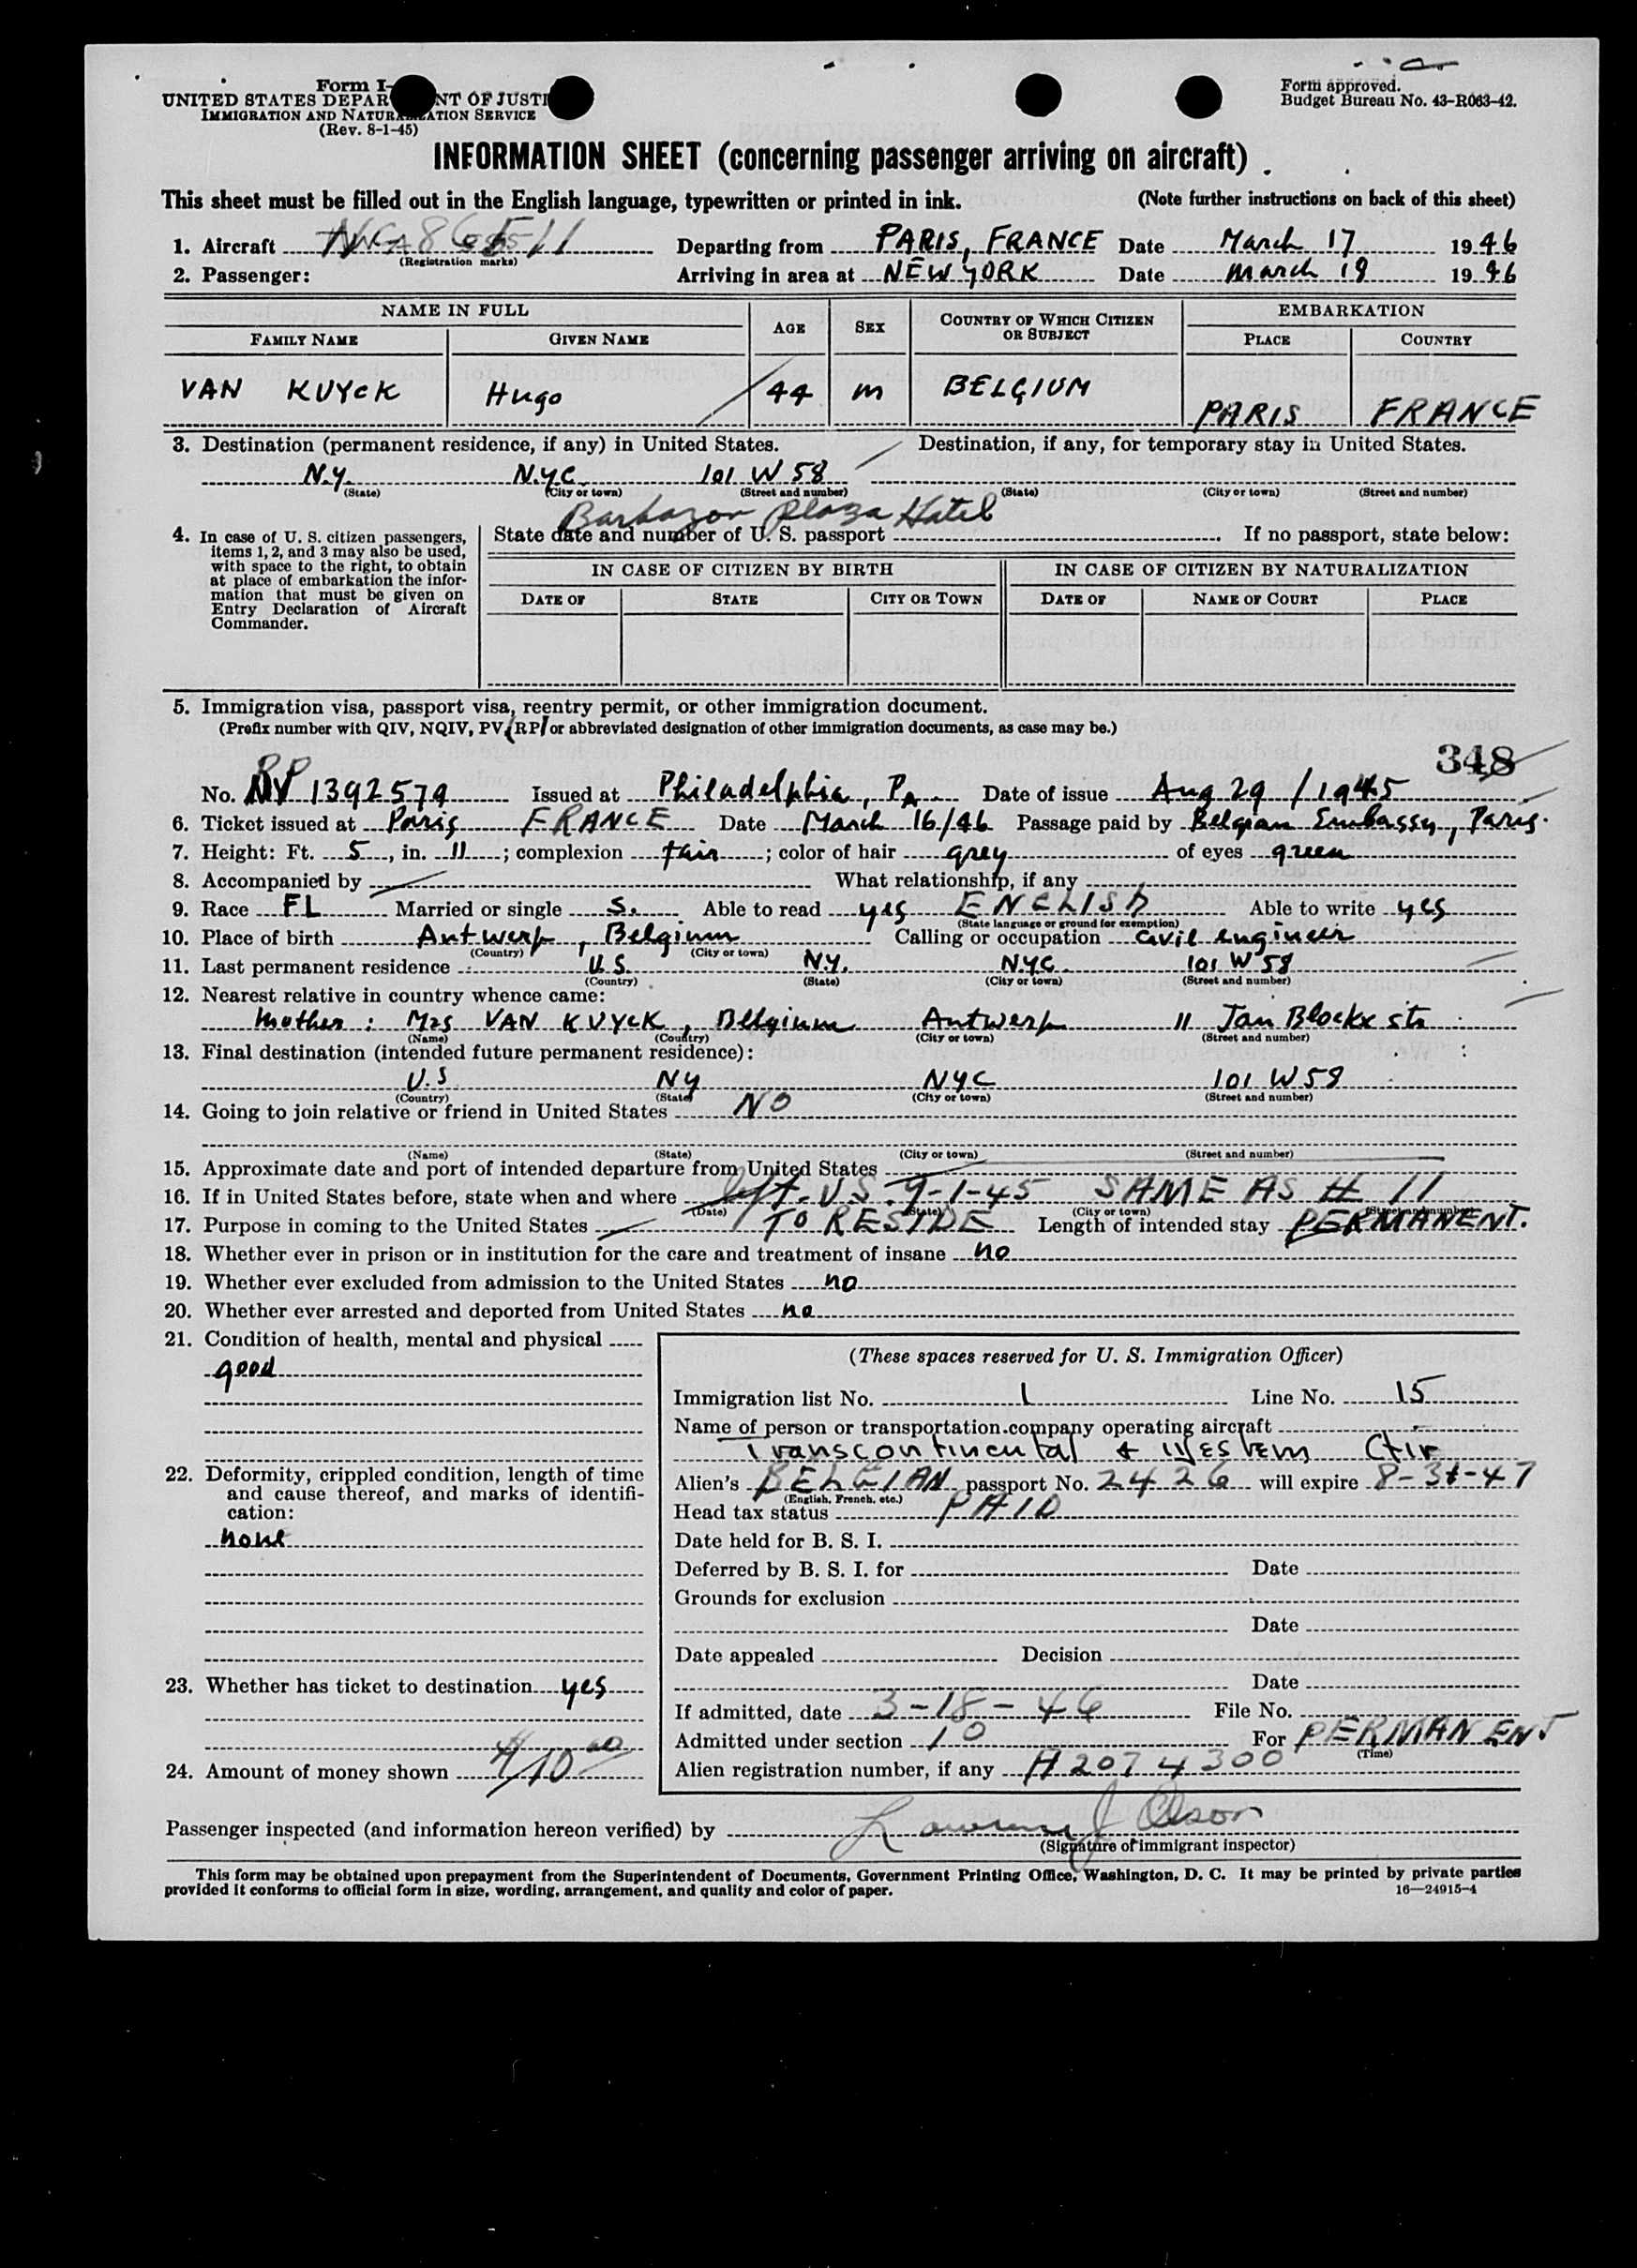 Form I-
UNITED STATES DEPAR NT OF JUSTI
IMMIGRATION AND NATURALIZATION SERVICE
(Rev. 8-1-45)
Form approved.
Budget Bureau No. 43-R063-42.
INFORMATION SHEET (concerning passenger arriving on aircraft)
This sheet must be filled out in the English language, typewritten or printed in ink. (Note further instructions on back of this sheet)
1. Aircraft Departing from PARIS, FRANCE Date March 17 1946
(Registration marks)
2. Passenger: Arriving in area at NEW YORK Date March 18 1946
NAME IN FULL AGE SEX COUNTRY OF WHICH CITIZEN OR SUBJECT EMBARKATION
FAMILY NAME GIVEN NAME PLACE COUNTRY
VAN KUYCK Hugo 44 m BELGIUM PARIS FRANCE
3. Destination (permanent residence, if any) in United States. Destination, if any, for temporary stay in United States.
N.Y. N.Y.C. 101 W 58
(State) (City or town) (Street and number) (State) (City or town) (Street and number)
Barbazon Plaza Hotel
4. In case of U. S. citizen passengers, items 1, 2, and 3 may also be used, with space to the right, to obtain at place of embarkation the information that must be given on Entry Declaration of Aircraft Commander.
State date and number of U. S. passport . If no passport, state below:
IN CASE OF CITIZEN BY BIRTH IN CASE OF CITIZEN BY NATURALIZATION
DATE OF STATE CITY OR TOWN DATE OF NAME OF COURT PLACE
5. Immigration visa, passport visa, reentry permit, or other immigration document.
(Prefix number with QIV, NQIV, PV, RP, or abbreviated designation of other immigration documents, as case may be.)
348
No. RP 1392579 Issued at Philadelphia, PA. Date of issue Aug 29 / 1945
6. Ticket issued at Paris FRANCE Date March 16/46 Passage paid by Belgian Embassy, Paris.
7. Height: Ft. 5, in. 11; complexion fair; color of hair grey of eyes green
8. Accompanied by What relationship, if any
9. Race FL Married or single S. Able to read yes ENGLISH Able to write yes
(State language or ground for exemption)
10. Place of birth Antwerp, Belgium Calling or occupation civil engineer
(Country) (City or town)
11. Last permanent residence U.S. N.Y. NYC. 101 W 58
(Country) (State) (City or town) (Street and number)
12. Nearest relative in country whence came:
Mother: Mrs VAN KUYCK, Belgium Antwerp 11 Jan Blockx str
(Name) (Country) (City or town) (Street and number)
13. Final destination (intended future permanent residence):
U.S NY NYC 101 W 58
(Country) (State) (City or town) (Street and number)
14. Going to join relative or friend in United States NO
(Name) (State) (City or town) (Street and number)
15. Approximate date and port of intended departure from United States
16. If in United States before, state when and where left U.S. 9-1-45 SAME AS # 11
(Date) (State) (City or town) (Street and number)
17. Purpose in coming to the United States TO RESIDE Length of intended stay PERMANENT.
18. Whether ever in prison or in institution for the care and treatment of insane no
19. Whether ever excluded from admission to the United States no
20. Whether ever arrested and deported from United States no
21. Condition of health, mental and physical
good
22. Deformity, crippled condition, length of time and cause thereof, and marks of identification:
none
23. Whether has ticket to destination yes
24. Amount of money shown $10.00
(These spaces reserved for U. S. Immigration Officer)
Immigration list No. 1 Line No. 15
Name of person or transportation company operating aircraft
Transcontinental & Western Air
Alien's BELGIAN passport No. 2426 will expire 8-31-47
(English, French, etc.)
Head tax status PAID
Date held for B. S. I.
Deferred by B. S. I. for Date
Grounds for exclusion
Date
Date appealed Decision
Date
If admitted, date 3-18-46 File No.
Admitted under section 10 For PERMANENT
(Time)
Alien registration number, if any A 2074300
Passenger inspected (and information hereon verified) by Lawrence J Olson
(Signature of immigrant inspector)
This form may be obtained upon prepayment from the Superintendent of Documents, Government Printing Office, Washington, D. C. It may be printed by private parties
provided it conforms to official form in size, wording, arrangement, and quality and color of paper. 16—24915-4